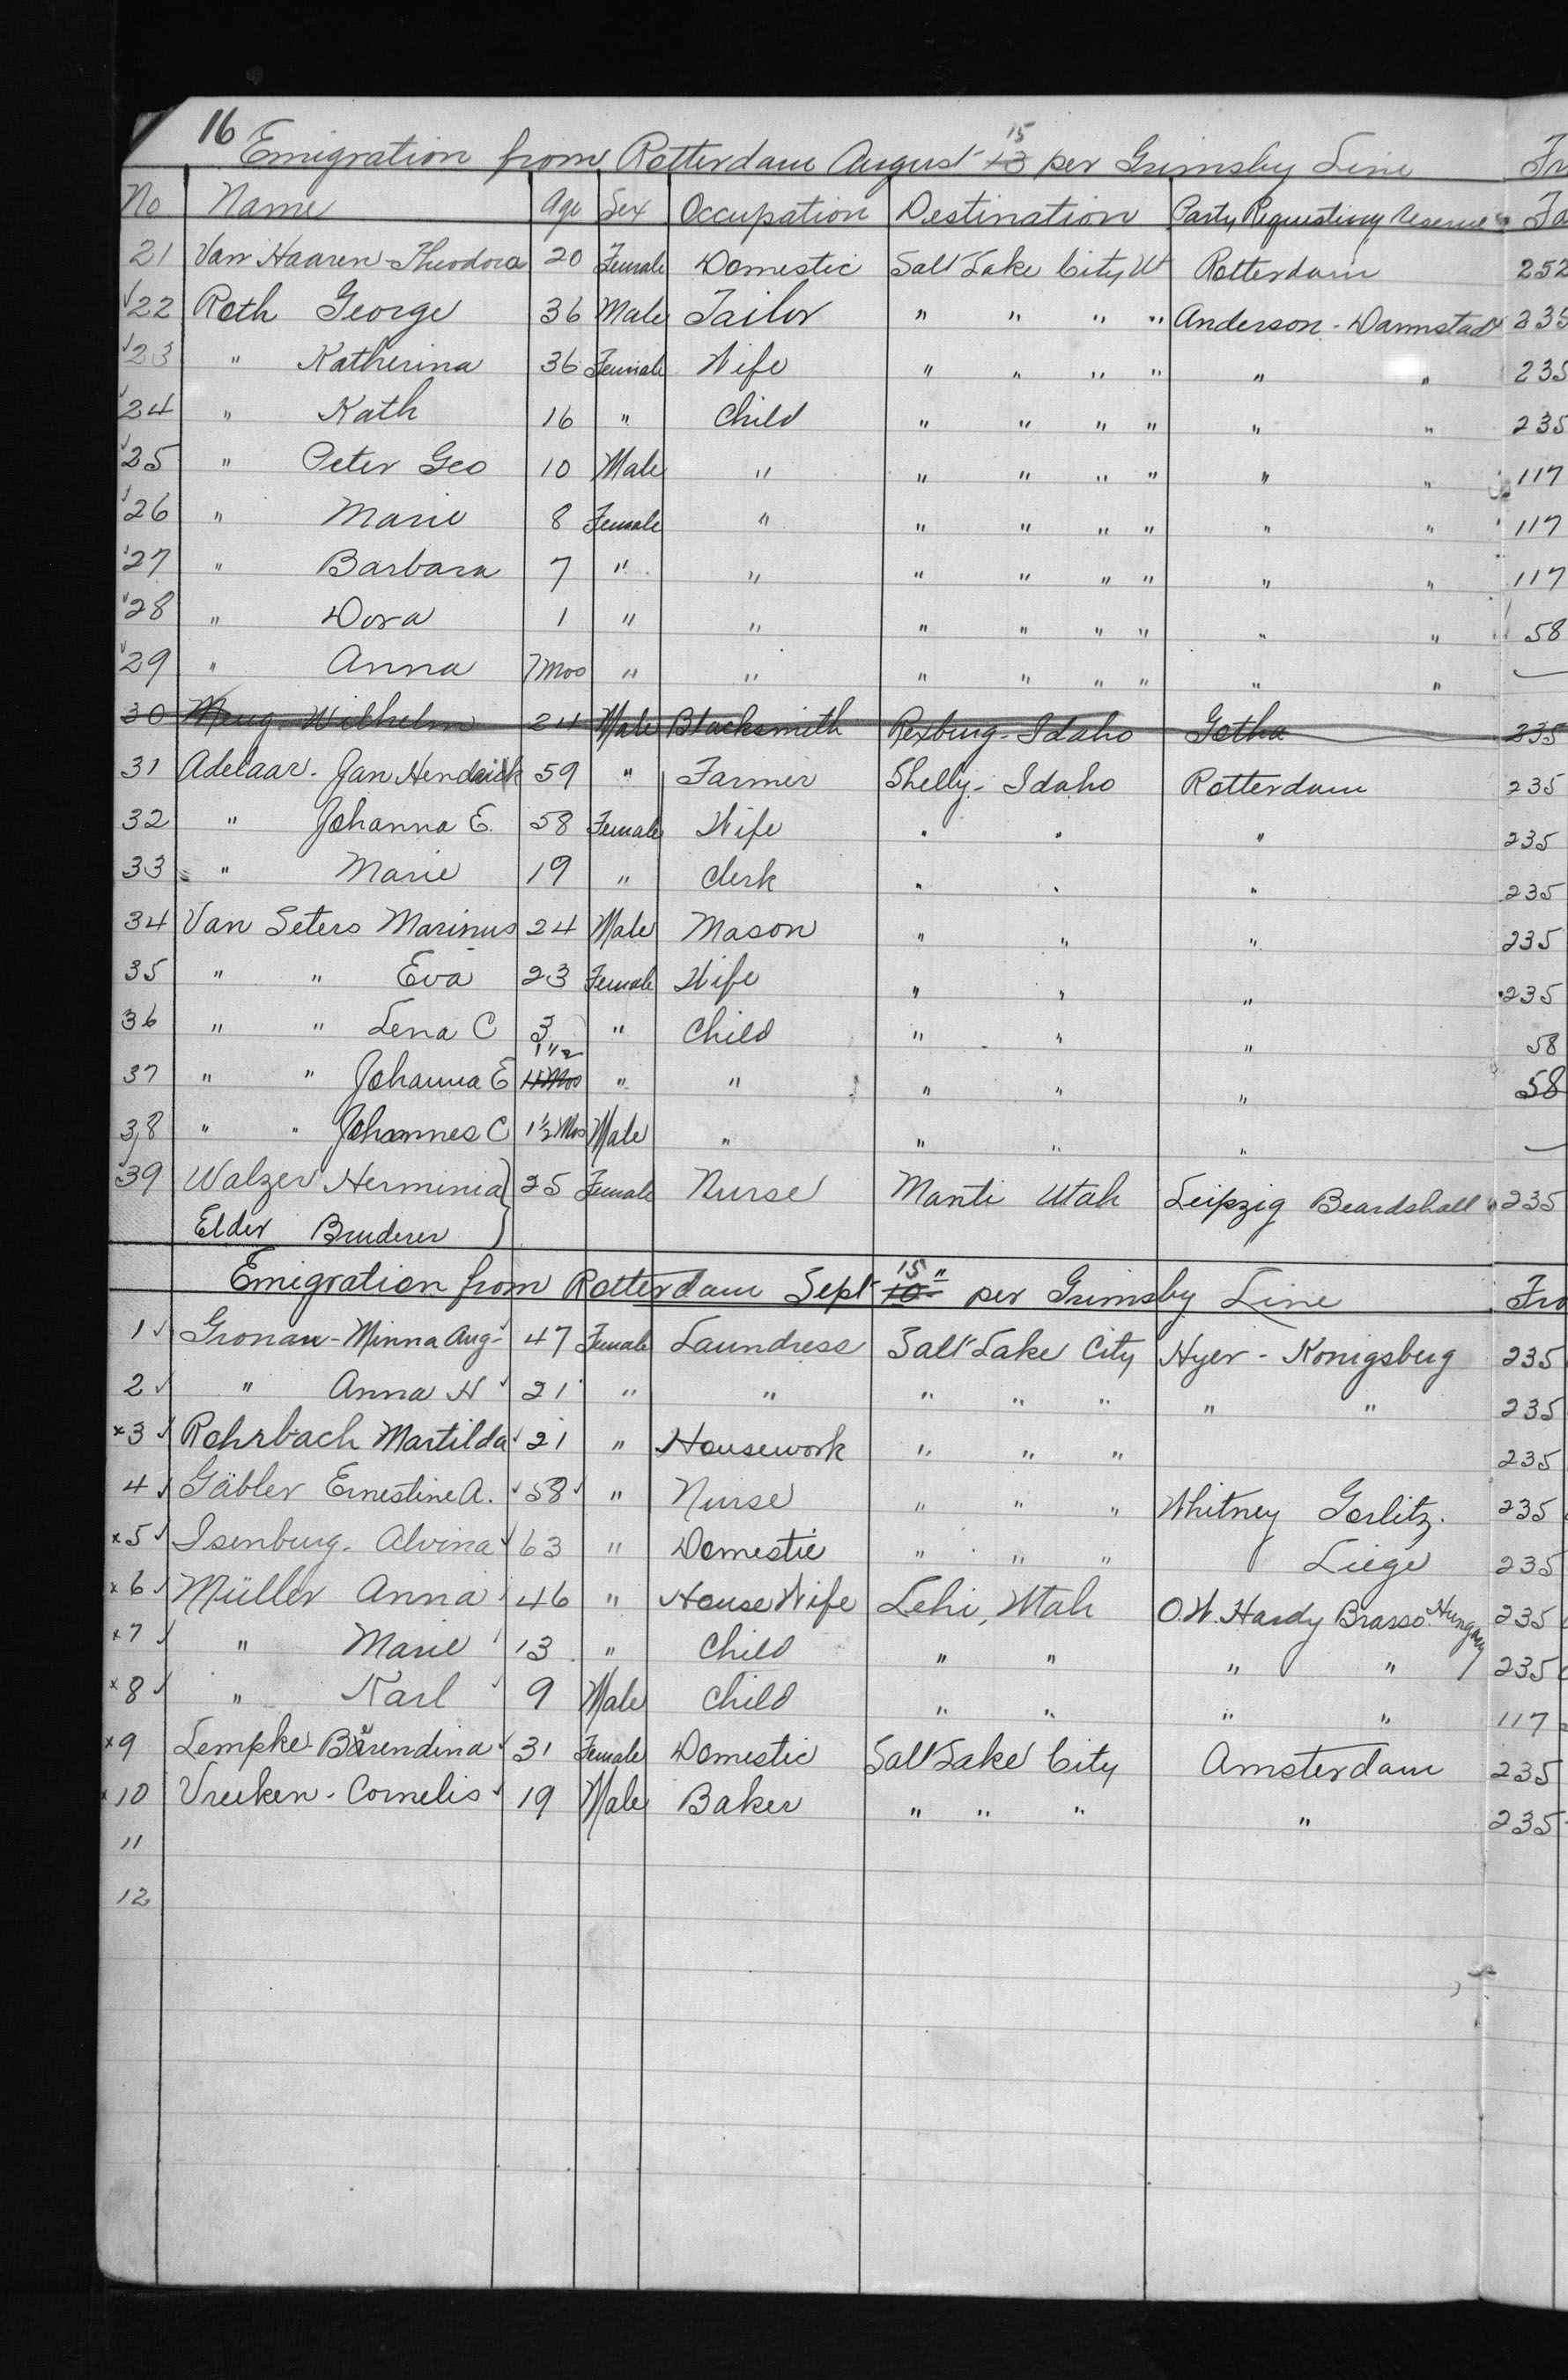 16
Emigration from Rotterdam August 13 15 per Grimsby Line
No Name Age Sex Occupation Destination Party Requesting Reserve
21 Van Haaren-Theodora 20 Female Domestic Salt Lake City Ut Rotterdam 252
22 Roth George 36 Male Tailor " " " " Anderson-Darmstadt 235
23 " Katherina 36 Female Wife " " " " " " 235
24 " Kath 16 " Child " " " " " " 235
25 " Peter Geo 10 Male " " " " " " " 117
26 " Marie 8 Female " " " " " " " 117
27 " Barbara 7 " " " " " " " " 117
28 " Dora 1 " " " " " " " " 58
29 " Anna 7 Mos " " " " " " " " —
30 Wilhelm 24 Male Blacksmith Rexburg-Idaho Gotha 235
31 Adelaar. Jan Hendrick 59 " Farmer Shelly-Idaho Rotterdam 235
32 " Johanna E. 58 Female Wife " " " 235
33 " Marie 19 " Clerk " " " 235
34 Van Seters Marinus 24 Male Mason " " " 235
35 " " Eva 23 Female Wife " " " 235
36 " " Lena C 3 " Child " " " 58
37 " " Johanna E 11 Mos 1 1/2 " " " " " 58
38 " " Johannes C 1½ Mos Male " " " " —
39 Walzer Herminia } 25 Female Nurse Manti Utah Leipzig Beardshall 235
Elder Bruderer
Emigration from Rotterdam Sept 10 15" per Grimsby Line
1 Gronau-Minna Aug- 47 Female Laundress Salt Lake City Hyer-Konigsberg 235
2 " Anna H 21 " " " " " " " 235
x3 Rohrbach Martilda 21 " Housework " " " 235
4 Gäbler Ernestine A. 58 " Nurse " " " Whitney Gorlitz. 235
x5 Isenburg. Alvina 63 " Domestic " " " Liege 235
x6 Müller Anna 46 " House Wife Lehi, Utah O.W. Hardy Brasso. Hungary 235
x7 " Marie 13 " Child " " " " 235
x8 " Karl 9 Male Child " " " " 117
x9 Lempke Barendina 31 Female Domestic Salt Lake City Amsterdam 235
x10 Vreeken-Cornelis 19 Male Baker " " " " 235
11
12